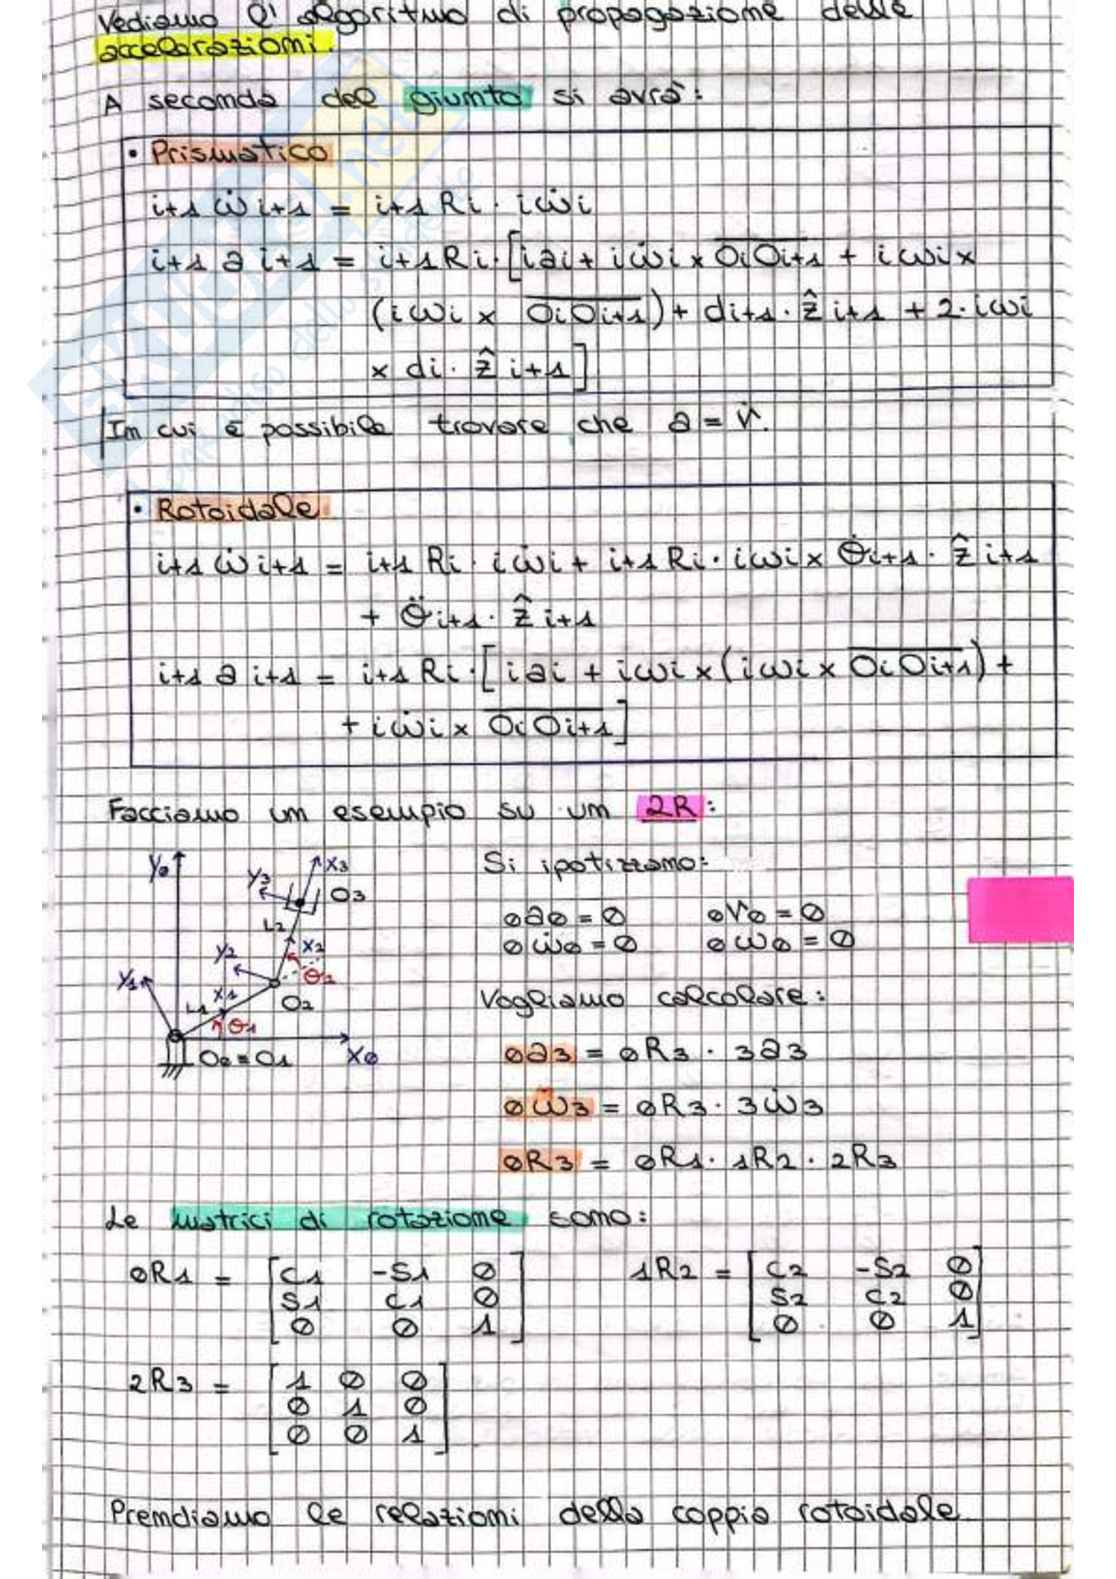 Vediamo l'algoritmo di propagazione delle
accelerazioni.
A seconda del giunto si avrà:
• Prismatico
i+1 ω̇ i+1 = i+1 Ri · i ω̇ i
i+1 a i+1 = i+1 Ri · [i ai + i ω̇ i × OiOi+1 + i ωi ×
(i ωi × OiOi+1) + di+1 · ẑ i+1 + 2 · i ωi
× di · ẑ i+1]
In cui è possibile trovare che a = v̇.
• Rotoidale
i+1 ω̇ i+1 = i+1 Ri · i ω̇ i + i+1 Ri · i ωi × Θ̇ i+1 · ẑ i+1
+ Θ̈ i+1 · ẑ i+1
i+1 a i+1 = i+1 Ri · [i ai + i ωi × (i ωi × OiOi+1) +
+ i ω̇ i × OiOi+1]
Facciamo un esempio su un 2R:
Y0 X3 Y3 O3
L2 X2 Y2 Θ2
Y1 X1 L1 O2
Θ1
O0 = O1 X0
Si ipotizzano:
0a0 = 0 0v0 = 0
0ω̇0 = 0 0ω0 = 0
Vogliamo calcolare:
0a3 = 0R3 · 3a3
0ω̇3 = 0R3 · 3ω̇3
0R3 = 0R1 · 1R2 · 2R3
Le matrici di rotazione sono:
0R1 = [C1 -S1 0 1R2 = [C2 -S2 0
S1 C1 0 S2 C2 0
0 0 1] 0 0 1]
2R3 = [1 0 0
0 1 0
0 0 1]
Prendiamo le relazioni della coppia rotoidale